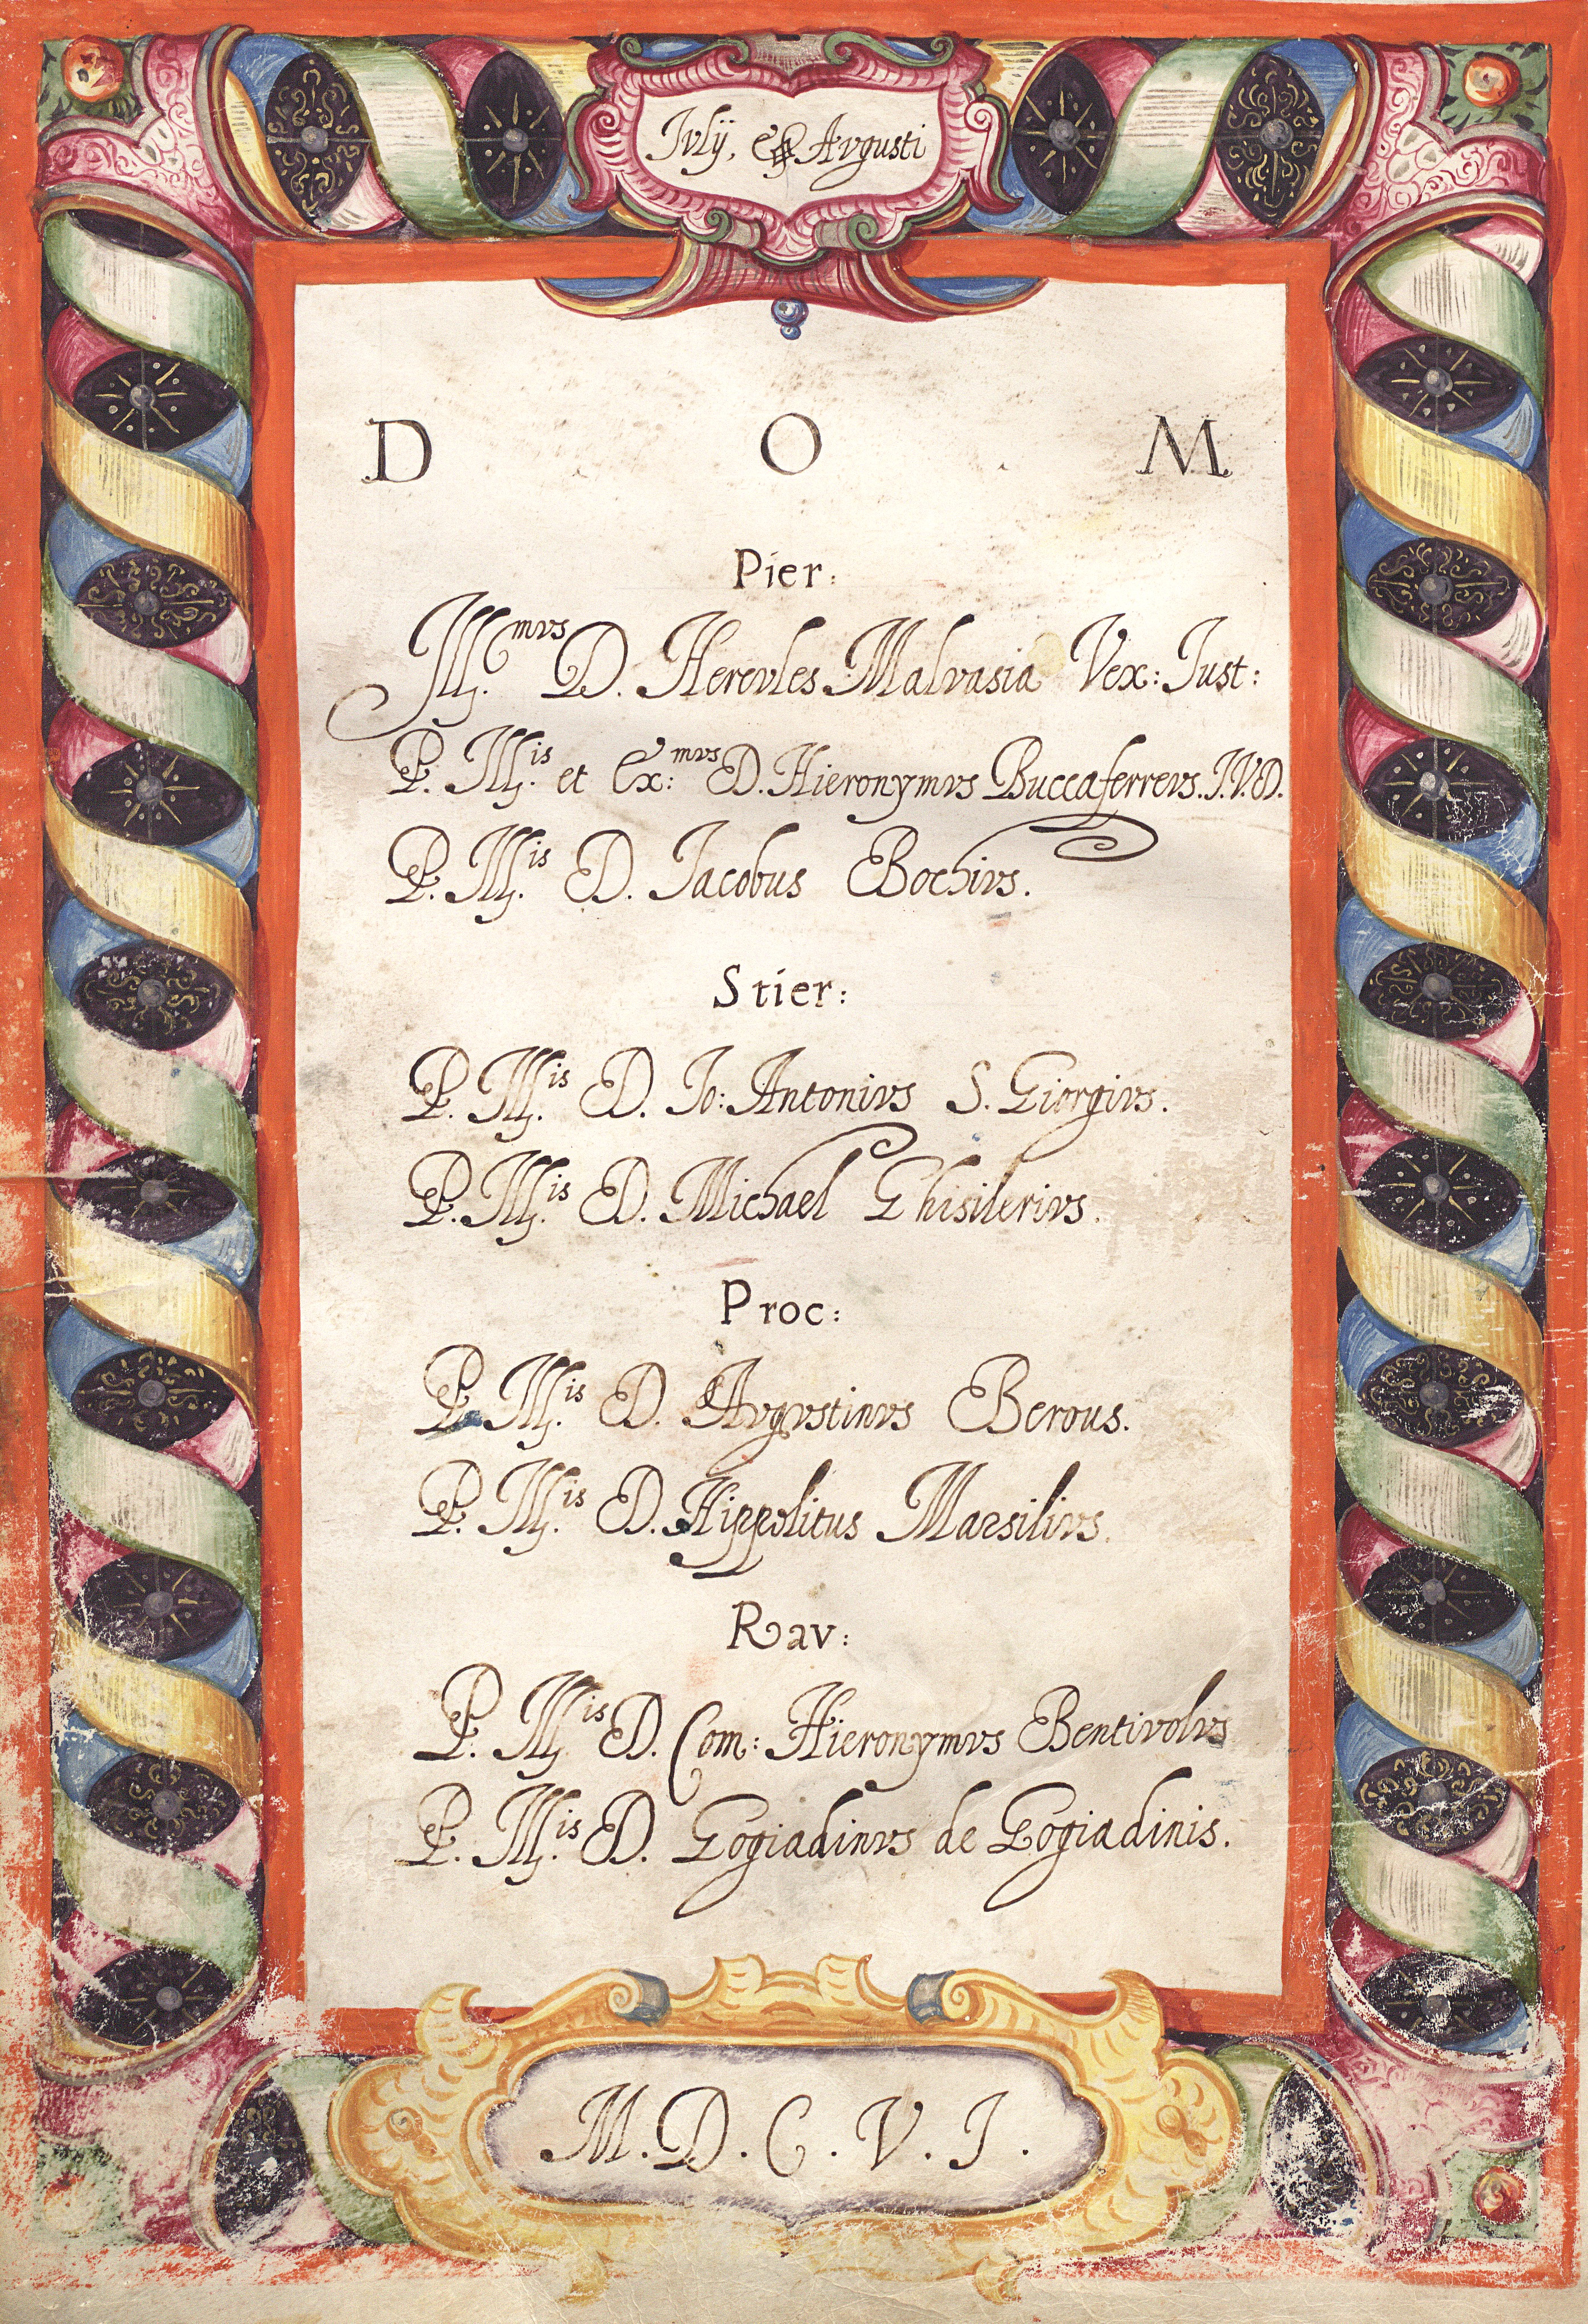 Ivlÿ, & Avgusti
D O M
Pier:
Ill.mvs D. Hercvles Malvasia Vex: Iust:
P. Ill.is et Ex:mvs D. Hieronymvs Buccaferrevs. I.V.D.
P. Ill.is D. Iacobus Bochivs.
Stier:
P. Ill.is D. Io: Antonivs S. Giorgivs.
P. Ill.is D. Michael Ghisilerivs.
Proc:
P. Ill.is D. Avgvstinvs Berous.
P. Ill.is D. Hippolitus Marsilivs.
Rav:
P. Ill.is D. Com: Hieronymvs Bentivolvs
P. Ill.is D. Gogiadinvs de Gogiadinis.
M. D. C. V. I.